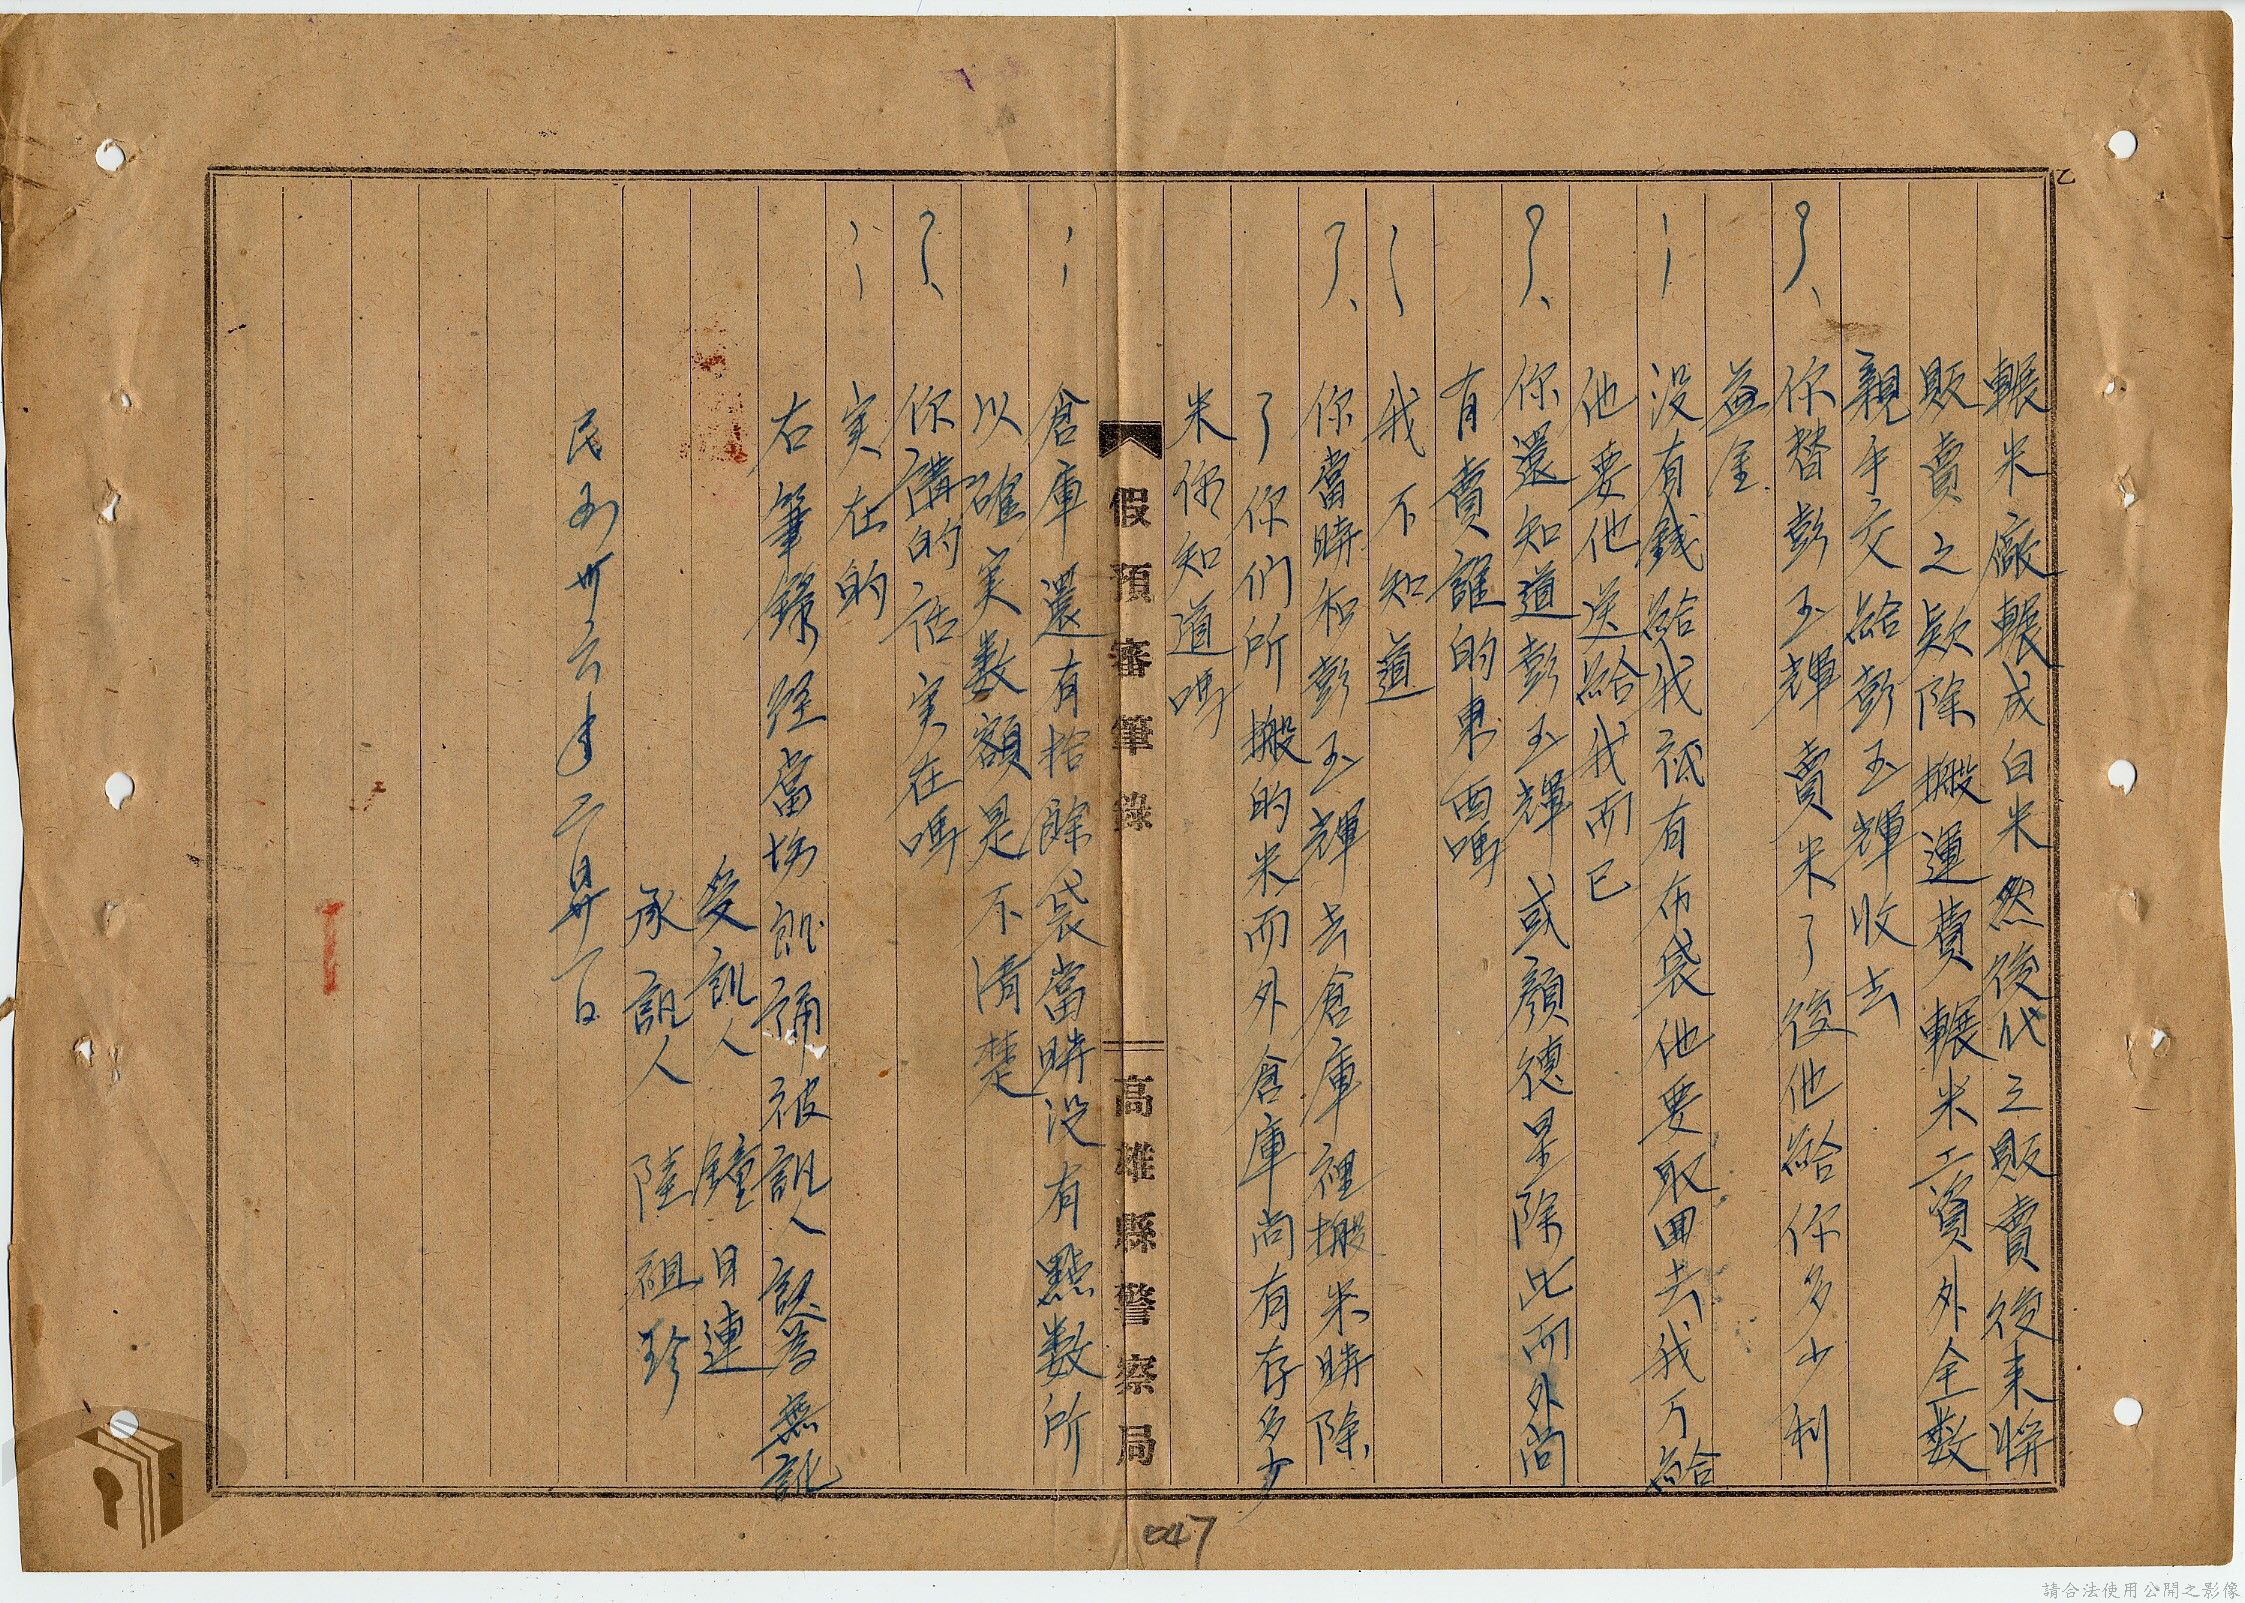 乙
輾米廠輾成白米然後代之販賣後来將
販賣之欵除搬運費輾米工資外全数
親手交給彭玉輝收去
？、你替彭玉輝賣米了後他給你多少利
益金
：没有錢給我祗有布袋他要取囬去我万給
他要他送給我而已
？、你還知道彭玉輝或顏德星除此而外尚
有賣誰的東西嗎
：我不知道
？、你當時和彭玉輝去倉庫裡搬米時除
了你們所搬的米而外倉庫尚有存多少
米你知道嗎
假預審筆錄
高雄縣警察局
：倉庫還有拾餘袋當時没有點数所
以確实数額是不清楚
？、你講的话实在嗎
：实在的
右筆錄經當場朗誦被訊人認為無訛
受訊人 鐘日連
承訊人 陸祖珍
民國卅六年六月廿一日
047
請合法使用公開之影像